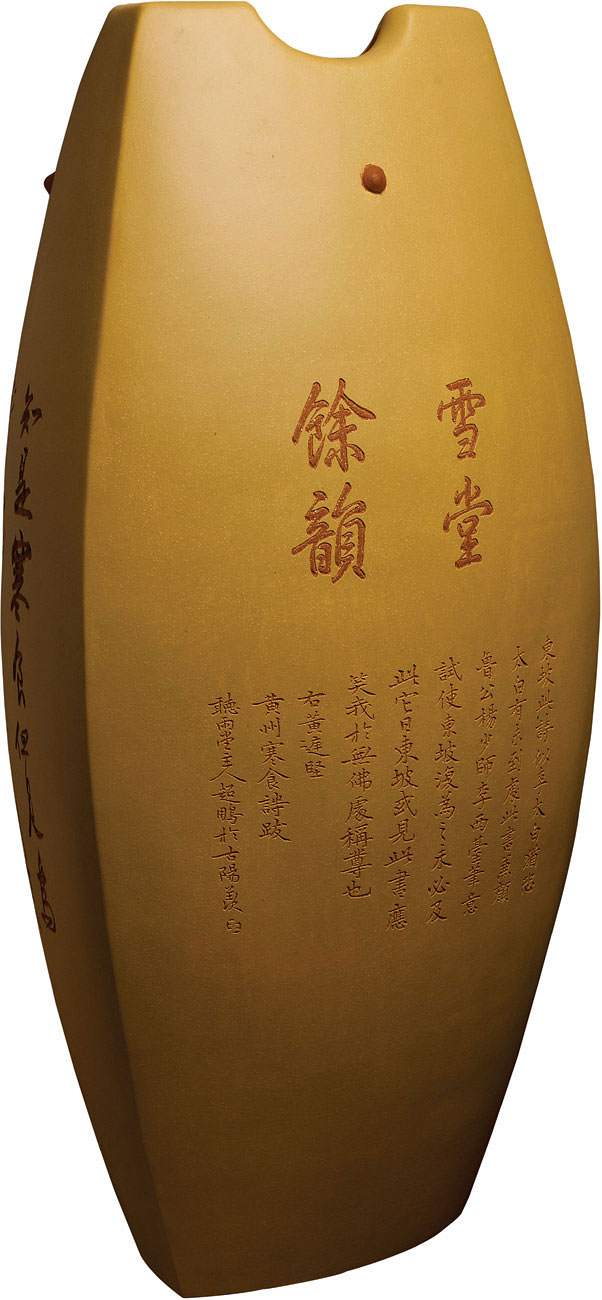 雪堂
餘韻
東坡此詩似李太白猶恐
太白有未到處此書兼顏
魯公楊少師李西臺筆意
試使東坡復為之未必及
此它日東坡或見此書應
笑我於無佛處稱尊也
右黃庭堅
黃州寒食詩跋
聽雨堂主人超鵬於古陽羨
知是寒食但見烏